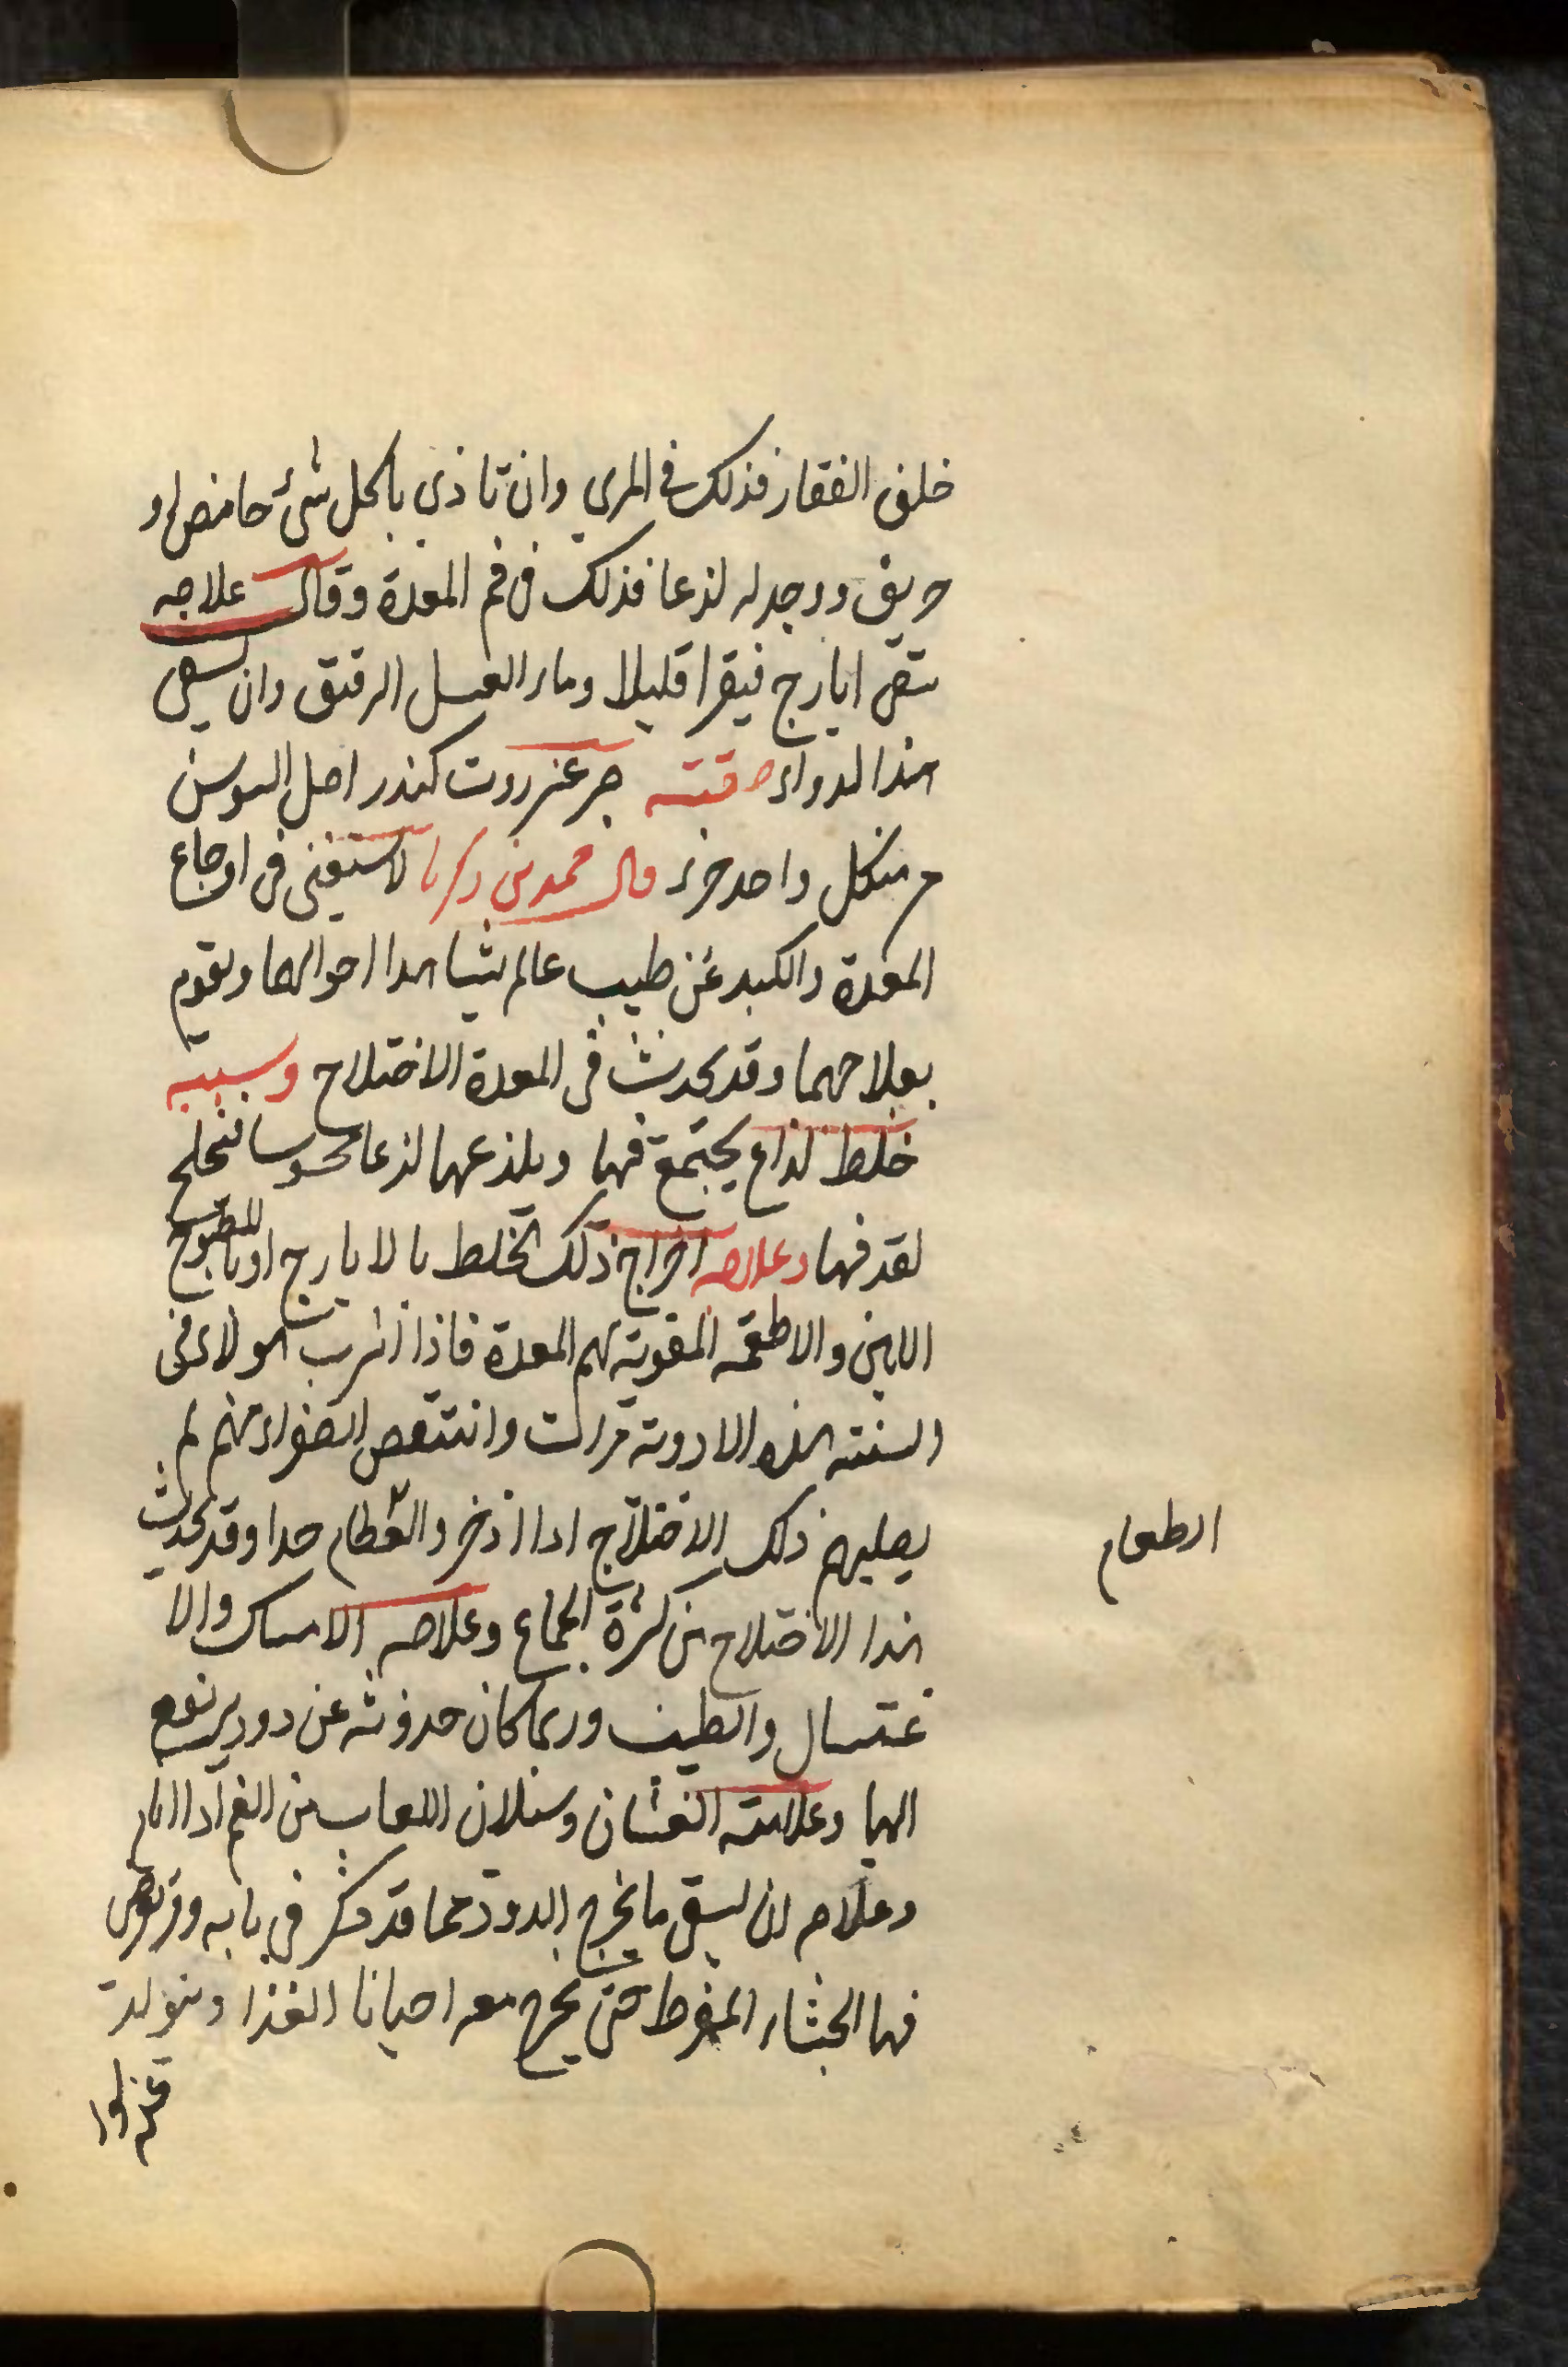 خلف الفقار فذلك في المري وان تاذي باكل شئ حامض او
حريف ووجد له لذعا فذلك في فم المعدة وقال علاجه
يتقى ايارج فيقرا قليلا وماء العسل الرقيق وان يسقى
هذا الدواء صفته عنزروت كندر اصل السوسن
من كل واحد جزء قال محمد بن زكريا لا يستغنى في اوجاع
المعدة والكبد عن طبيب عالم يشاهدا احوالهما ويقوم
بعلاجهما وقد يحدث في المعدة الاختلاج وسببه
خلط لذاع يجتمع فيها ويلذعها لذعا محسوسا
فيها وعلاجه اخراج ذلك الخلط بالايارج او بالمطبوخ
اللين والاطعمة المقوية لهم المعدة فاذا شرب هولاء في
السنته هذه الادوية مرات وانتقص الصفراء منهم لم
يصليهم ذلك الاختلاج اذا اذخروا الطعام جدا وقد يحدث
الطعام
هذا الاختلاج من كثرة الجماع وعلاجه الامساك والا
غتسال والطيب وربما كان حدوثه عن دود يرتفع
اليها وعلامته الغثيان وسيلان اللعاب من الفم اذا نام
وعلاجه ان يسقى ما يخرج الدود مما قد ذكر في بابه وقد يعرض
فيها الجشاء المفرط حتى يخرج معه احيانا الغذا ويتولد